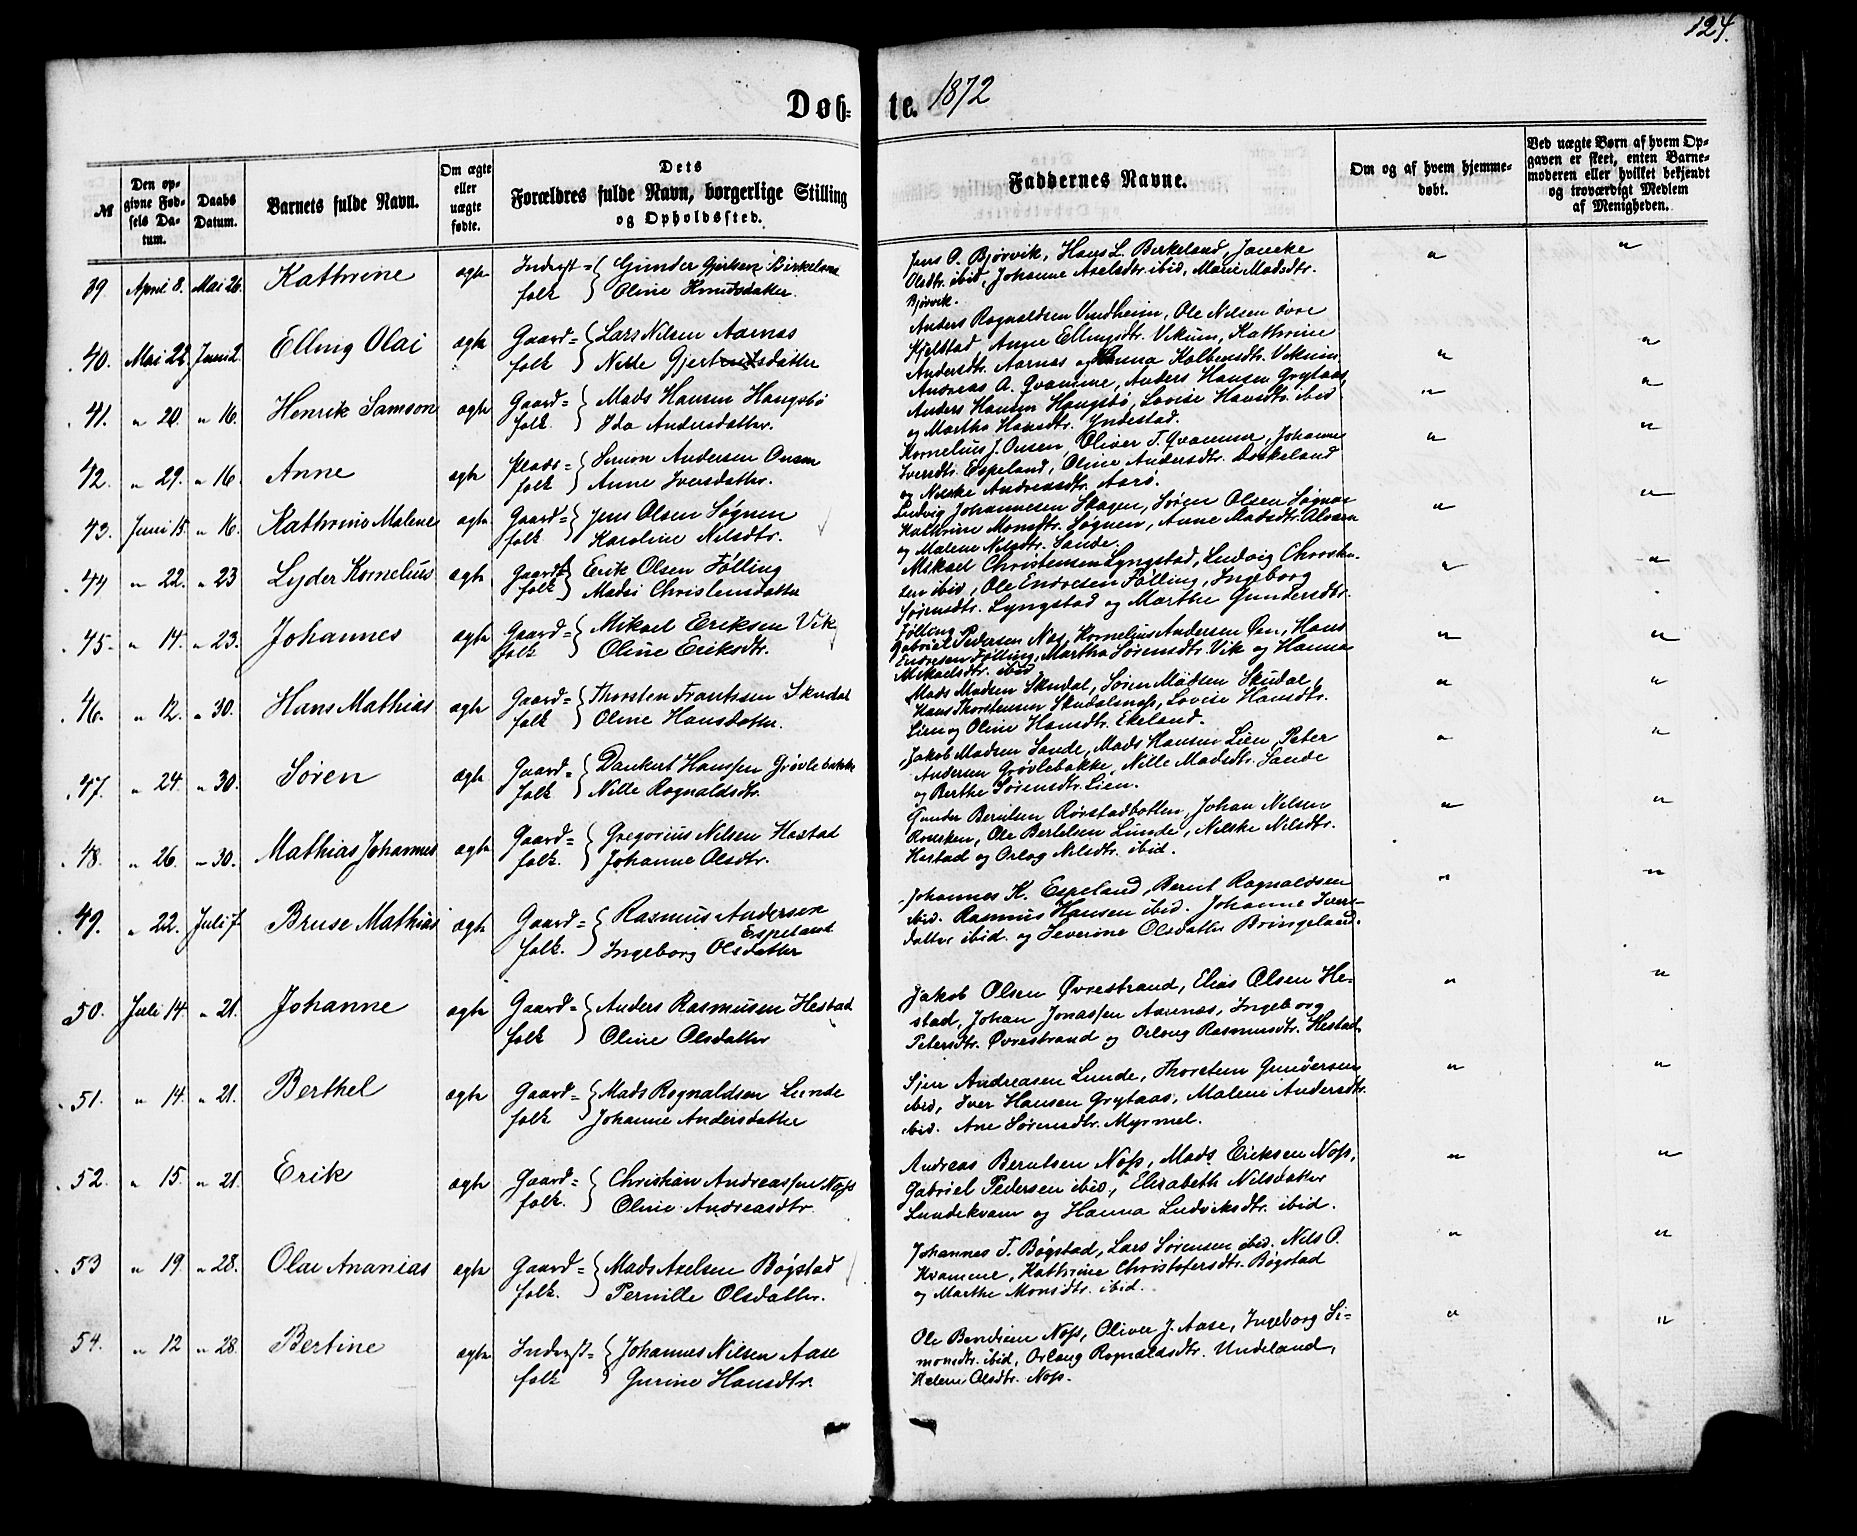 124.
Døb= te. 1872
№
Den op-
givne Fød-
sels Da-
tum.
Daabs
Datum.
Barnets fulde Navn.
Om ægte
eller
uægte
fødte.
Dets
Forældres fulde Navn, borgerlige Stilling
og Opholdssted.
Faddernes Navne.
Om og af hvem hjemme-
døbt.
Ved uægte Børn af hvem Op-
gaven er skeet, enten Barne-
moderen eller hvilket bekjendt
og troværdigt Medlem
af Menigheden.
39. April 8. Mai 26. Kathrine ægte Inderst= Gunder Gjertsen Birkeland
folk Oline Knudsdatter.
Jens O. Bjørvik, Hans L. Birkeland, Janeke
Olsdtr. ibid, Johanne Axelsdtr. ibid, Marie Madsdtr.
Bjørvik.
40. Mai 22. Juni 2. Elling Olai ægte Gaard= Lars Nilsen Aarnæs
folk Nille Gjertsdatter
Anders Rognaldsen Vindheim, Ole Nilsen øvre
Hjelstad, Anne Ellingsdtr. Vikum, Kathrine
Andersdtr. Aarnæs og Hanna Kolbensdtr. Vikum.
41. " 20. " 16. Henrik Samson ægte Gaard= Mads Hansen Haugsbø
folk. Ida Andersdatter.
Andreas A. Qvamme, Anders Hansen Grytaas,
Anders Hansen Haugsbø, Lovise Hansdtr. ibid
og Martha Hansdtr. Yndestad.
42. " 29. " 16. Anne ægte Plads= Simon Andersen Onsen
folk Anne Iversdatter.
Kornelius J. Onsen, Oliver T. Qvamme, Johanne
Iversdtr. Espeland, Oline Andersdtr. Doskeland
og Nilske Andreasdtr. Aarø.
43. Juni 15. " 16. Kathrine Malene ægte Gaard= Jens Olsen Søgnen
folk Karoline Nilsdtr.
Ludvig Johannesen Skagen, Søren Olsen Søgnen
Kathrine Monsdtr. Søgnen, Anne Madsdtr. Alvsen
og Malene Nilsdtr. Sande.
44 " 22. " 23 Lyder Kornelius ægte Gaard= Erik Olsen Følling
folk Madsi Christensdatter
Mikael Christensen Lyngstad, Ludvig Christen-
sen ibid, Ole Endresen Følling, Ingeborg
Sørensdtr. Lyngstad og Marthe Gundersdtr.
Følling.
45. " 14. " 23. Johannes ægte Gaard= Mikael Eriksen Vik
folk Oline Eriksdtr.
Gabriel Pedersen Nos, Kornelius Andersen Øen, Hans
Endresen Følling, Martha Sørensdtr. Vik og Hanna
Mikaelsdtr. ibid
46. " 12. " 30. Hans Mathias ægte Gaard= Thorsten Frantssen Skudal
folk Oline Hansdatter.
Mads Madsen Skudal, Søren Madsen Skudal,
Hans Thorstensen Skudalsnæs, Lovise Hansdtr.
Lien og Oline Hansdtr. Ekeland.
47. " 24. " 30. Søren ægte Gaard= Dankert Hanssen Grøvlebakke
folk. Nille Rognaldsdtr.
Jakob Madsen Sande, Mads Hansen Lien, Peter
Andersen Grøvlebakke, Nille Madsdtr. Sande
og Berthe Sørensdtr. Lien.
48. " 26. " 30. Mathias Johannes ægte Gaard= Gregorius Nilsen Hestad
folk. Johanne Olsdtr.
Gunder Berntsen Rørstadbotten, Johan Nilsen
Roesken, Ole Bertelsen Lunde, Nilske Nilsdtr.
Hestad og Orlog Nilsdtr. ibid.
49. " 22. Juli 7. Bruse Mathias ægte Gaard= Rasmus Andersen
Espeland
folk. Ingeborg Olsdatter
Johannes K. Espeland, Bernt Rognaldsen
ibid. Rasmus Hansen ibid. Johanne Ivers-
datter ibid. og Severine Olsdatter Bringeland.
50. Juli 14. " 21. Johanne ægte Gaard= Anders Rasmusen Hestad
folk Oline Olsdatter
Jakob Olsen Øvrestrand, Elias Olsen He-
stad, Johan Jonassen Aarnæs, Ingeborg
Petersdtr. Øvrestrand og Orloug Rasmusdtr. Hestad
51. " 14. " 21. Berthel ægte Gaard= Mads Rognaldsen Lunde
folk. Johanne Andersdatter
Sjur Andreasen Lunde, Thorsten Gundersen
ibid, Iver Hansen Grytaas, Malene Andersdtr.
ibid. Ane Sørensdtr. Myrmel.
52. " 15. " 21. Erik ægte Gaard= Christian Andreassen Noss
folk. Oline Andreasdtr.
Andreas Berntsen Noss, Mads Eriksen Noss,
Gabriel Pedersen ibid, Elisabeth Nilsdatter
Lundekvam og Hanna Ludviksdtr. ibid.
53 " 19. " 28. Olai Ananias ægte Gaard= Mads Axelsen Bøgstad
folk. Pernille Olsdatter.
Johannes T. Bøgstad, Lars Sørensen ibid. Nils O.
Kvamme, Kathrine Christofersdtr. Bøgstad
og Marthe Monsdtr. ibid.
54. " 12 " 28. Bertine ægte Inderst= Johannes Nilsen Aase
folk Gurine Hansdtr.
Ole Bendixen Noss, Oliver J. Aase, Ingeborg Si-
monsdtr. ibid, Orloug Rognaldsdtr. Undeland,
Helene Olsdtr. Noss.